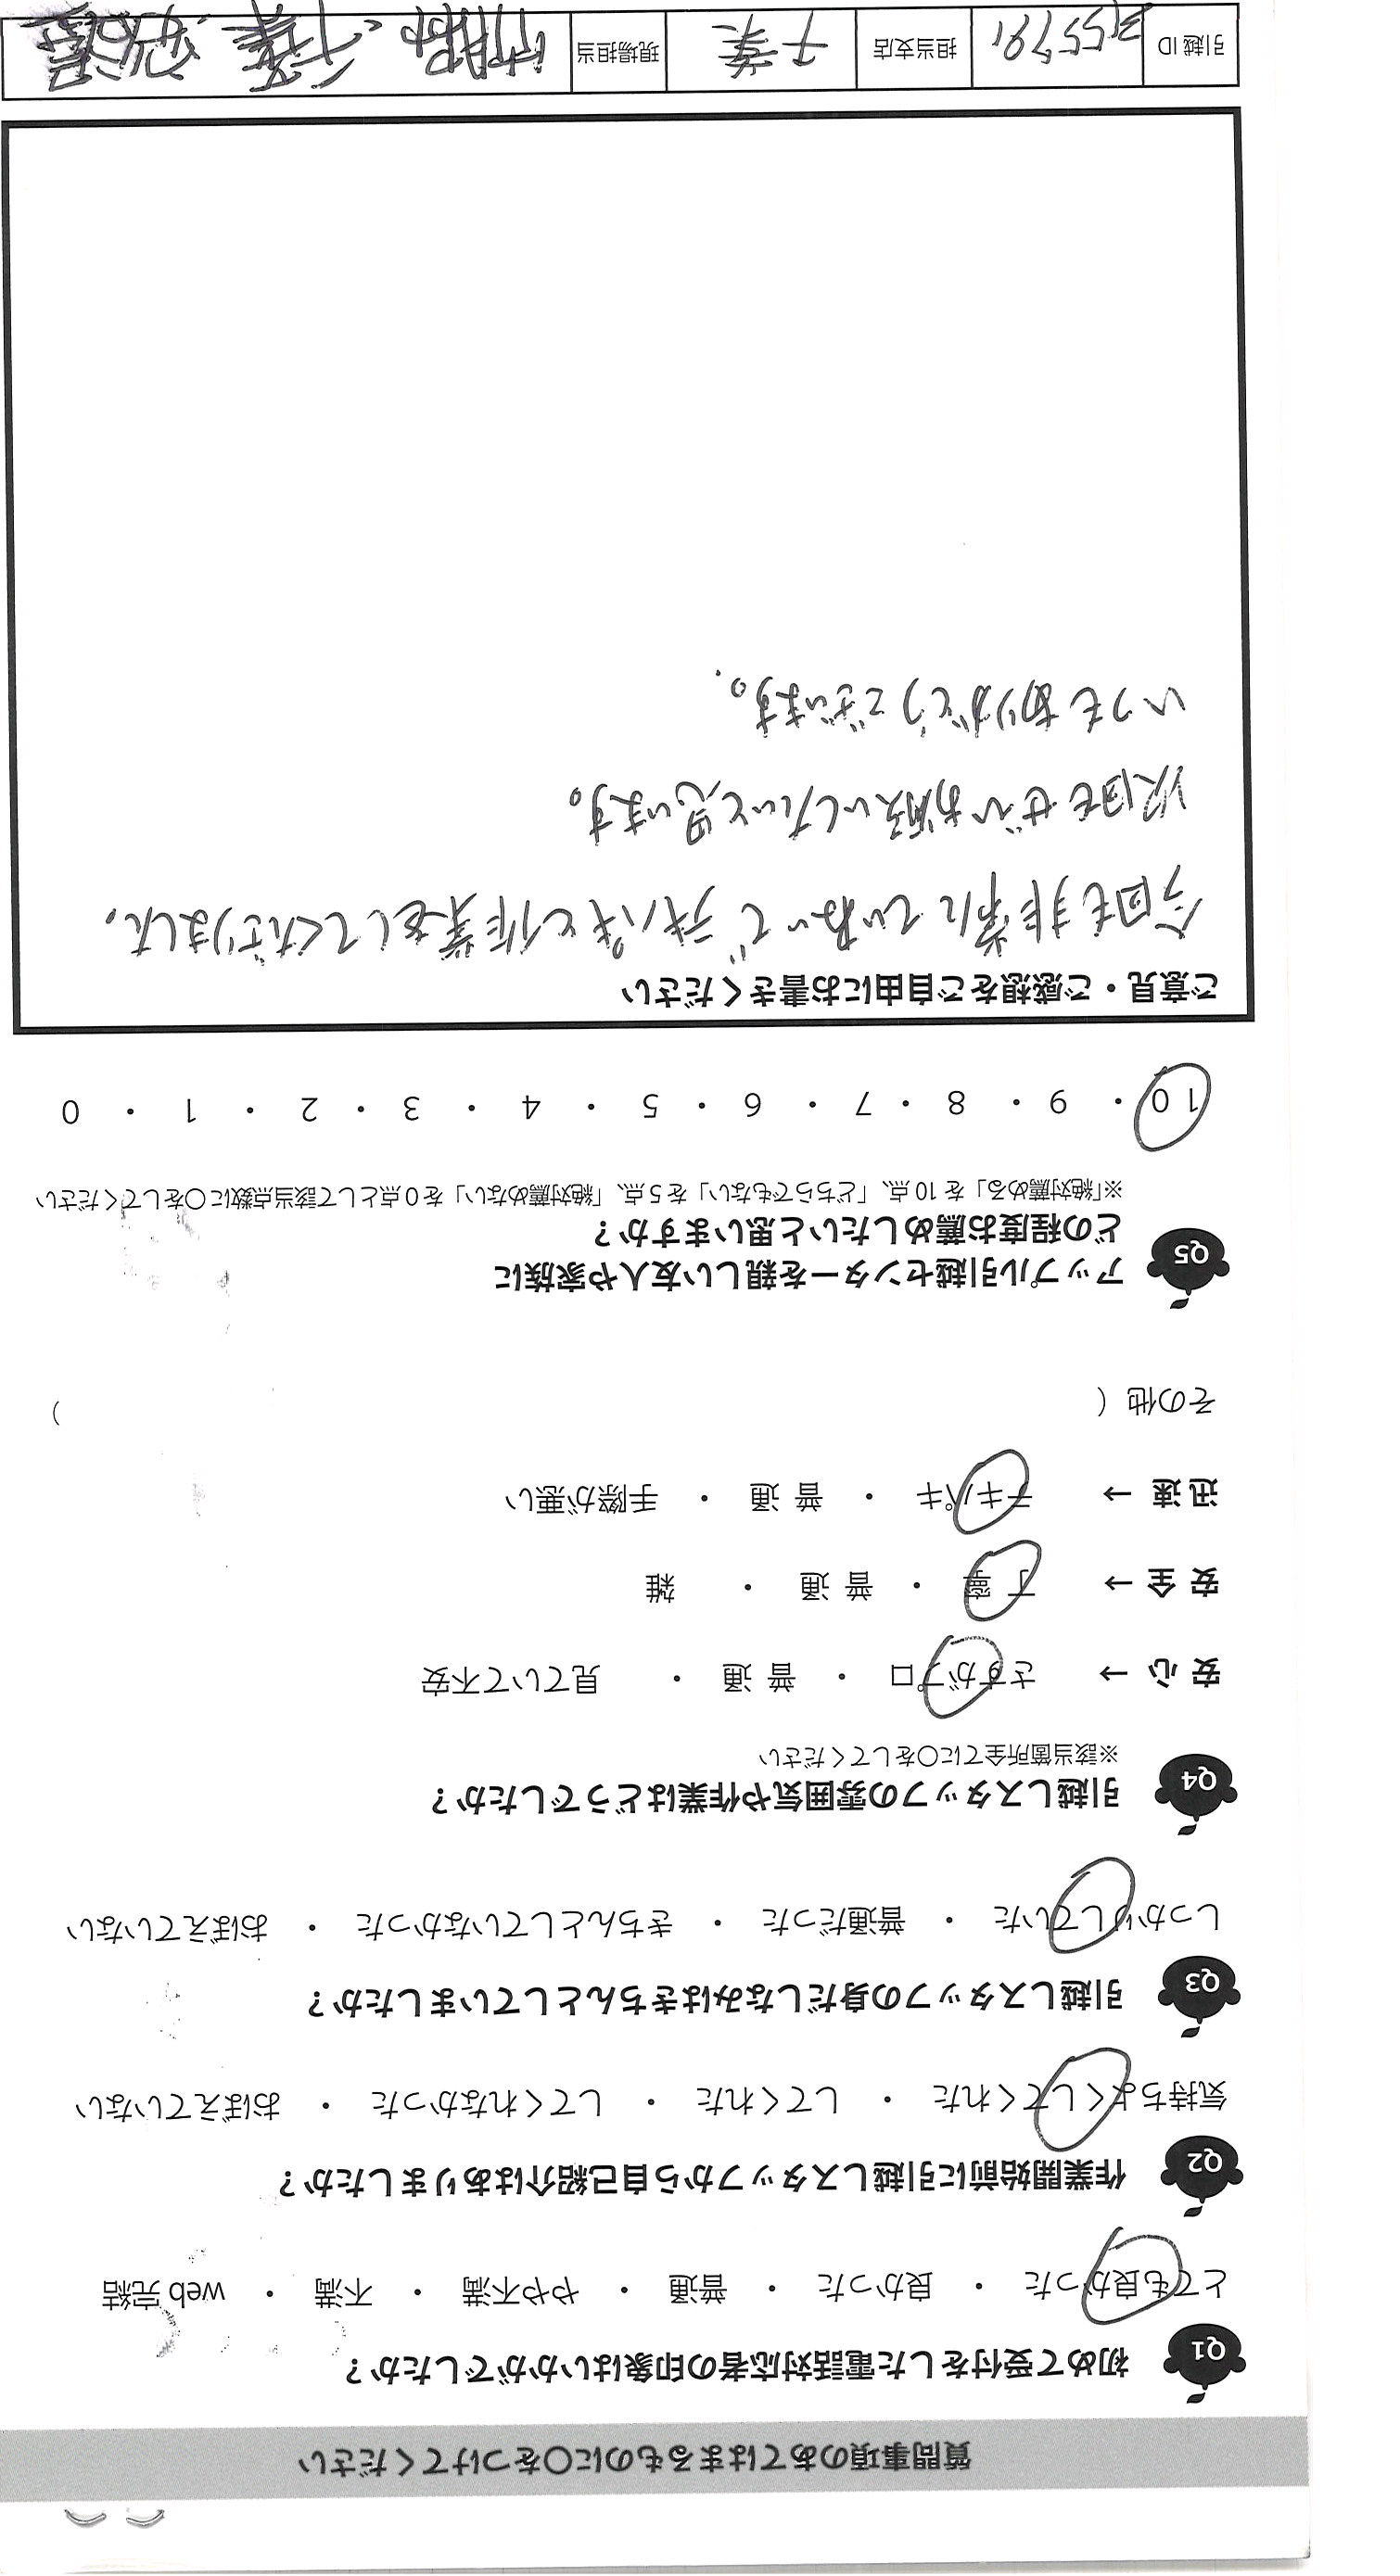 質問事項のあてはまるものに○をつけてください
Q1 初めて受付をした電話対応者の印象はいかがでしたか？
とても良かった ・ 良かった ・ 普通 ・ やや不満 ・ 不満 ・ web完結
Q2 作業開始前に引越しスタッフから自己紹介はありましたか？
気持ちよくしてくれた ・ してくれた ・ してくれなかった ・ おぼえていない
Q3 引越しスタッフの身だしなみはきちんとしていましたか？
しっかりしていた ・ 普通だった ・ きちんとしていなかった ・ おぼえていない
Q4 引越しスタッフの雰囲気や作業はどうでしたか？
※該当箇所全てに○をしてください
安心 → さすがプロ ・ 普通 ・ 見ていて不安
安全 → 丁寧 ・ 普通 ・ 雑
迅速 → テキパキ ・ 普通 ・ 手際が悪い
その他（ ）
Q5 アップル引越センターを親しい友人や家族に
どの程度お薦めしたいと思いますか？
※「絶対薦める」を10点、「どちらでもない」を5点、「絶対薦めない」を0点として該当点数に○をしてください
10 ・ 9 ・ 8 ・ 7 ・ 6 ・ 5 ・ 4 ・ 3 ・ 2 ・ 1 ・ 0
ご意見・ご感想をご自由にお書きください
今回も非常にていねいで テキパキと作業をしてくださりました。
次回もぜひお願いしたいと思います。
いつもありがとうございます。
引越ID 担当支店 千葉 現場担当